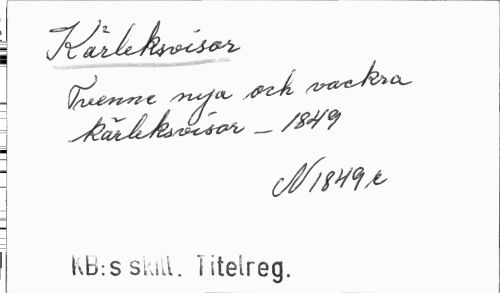 Kärleksvisor
Tvenne nya och vackra
kärleksvisor – 1849
N 1849 r
KB:s skill. Titelreg.